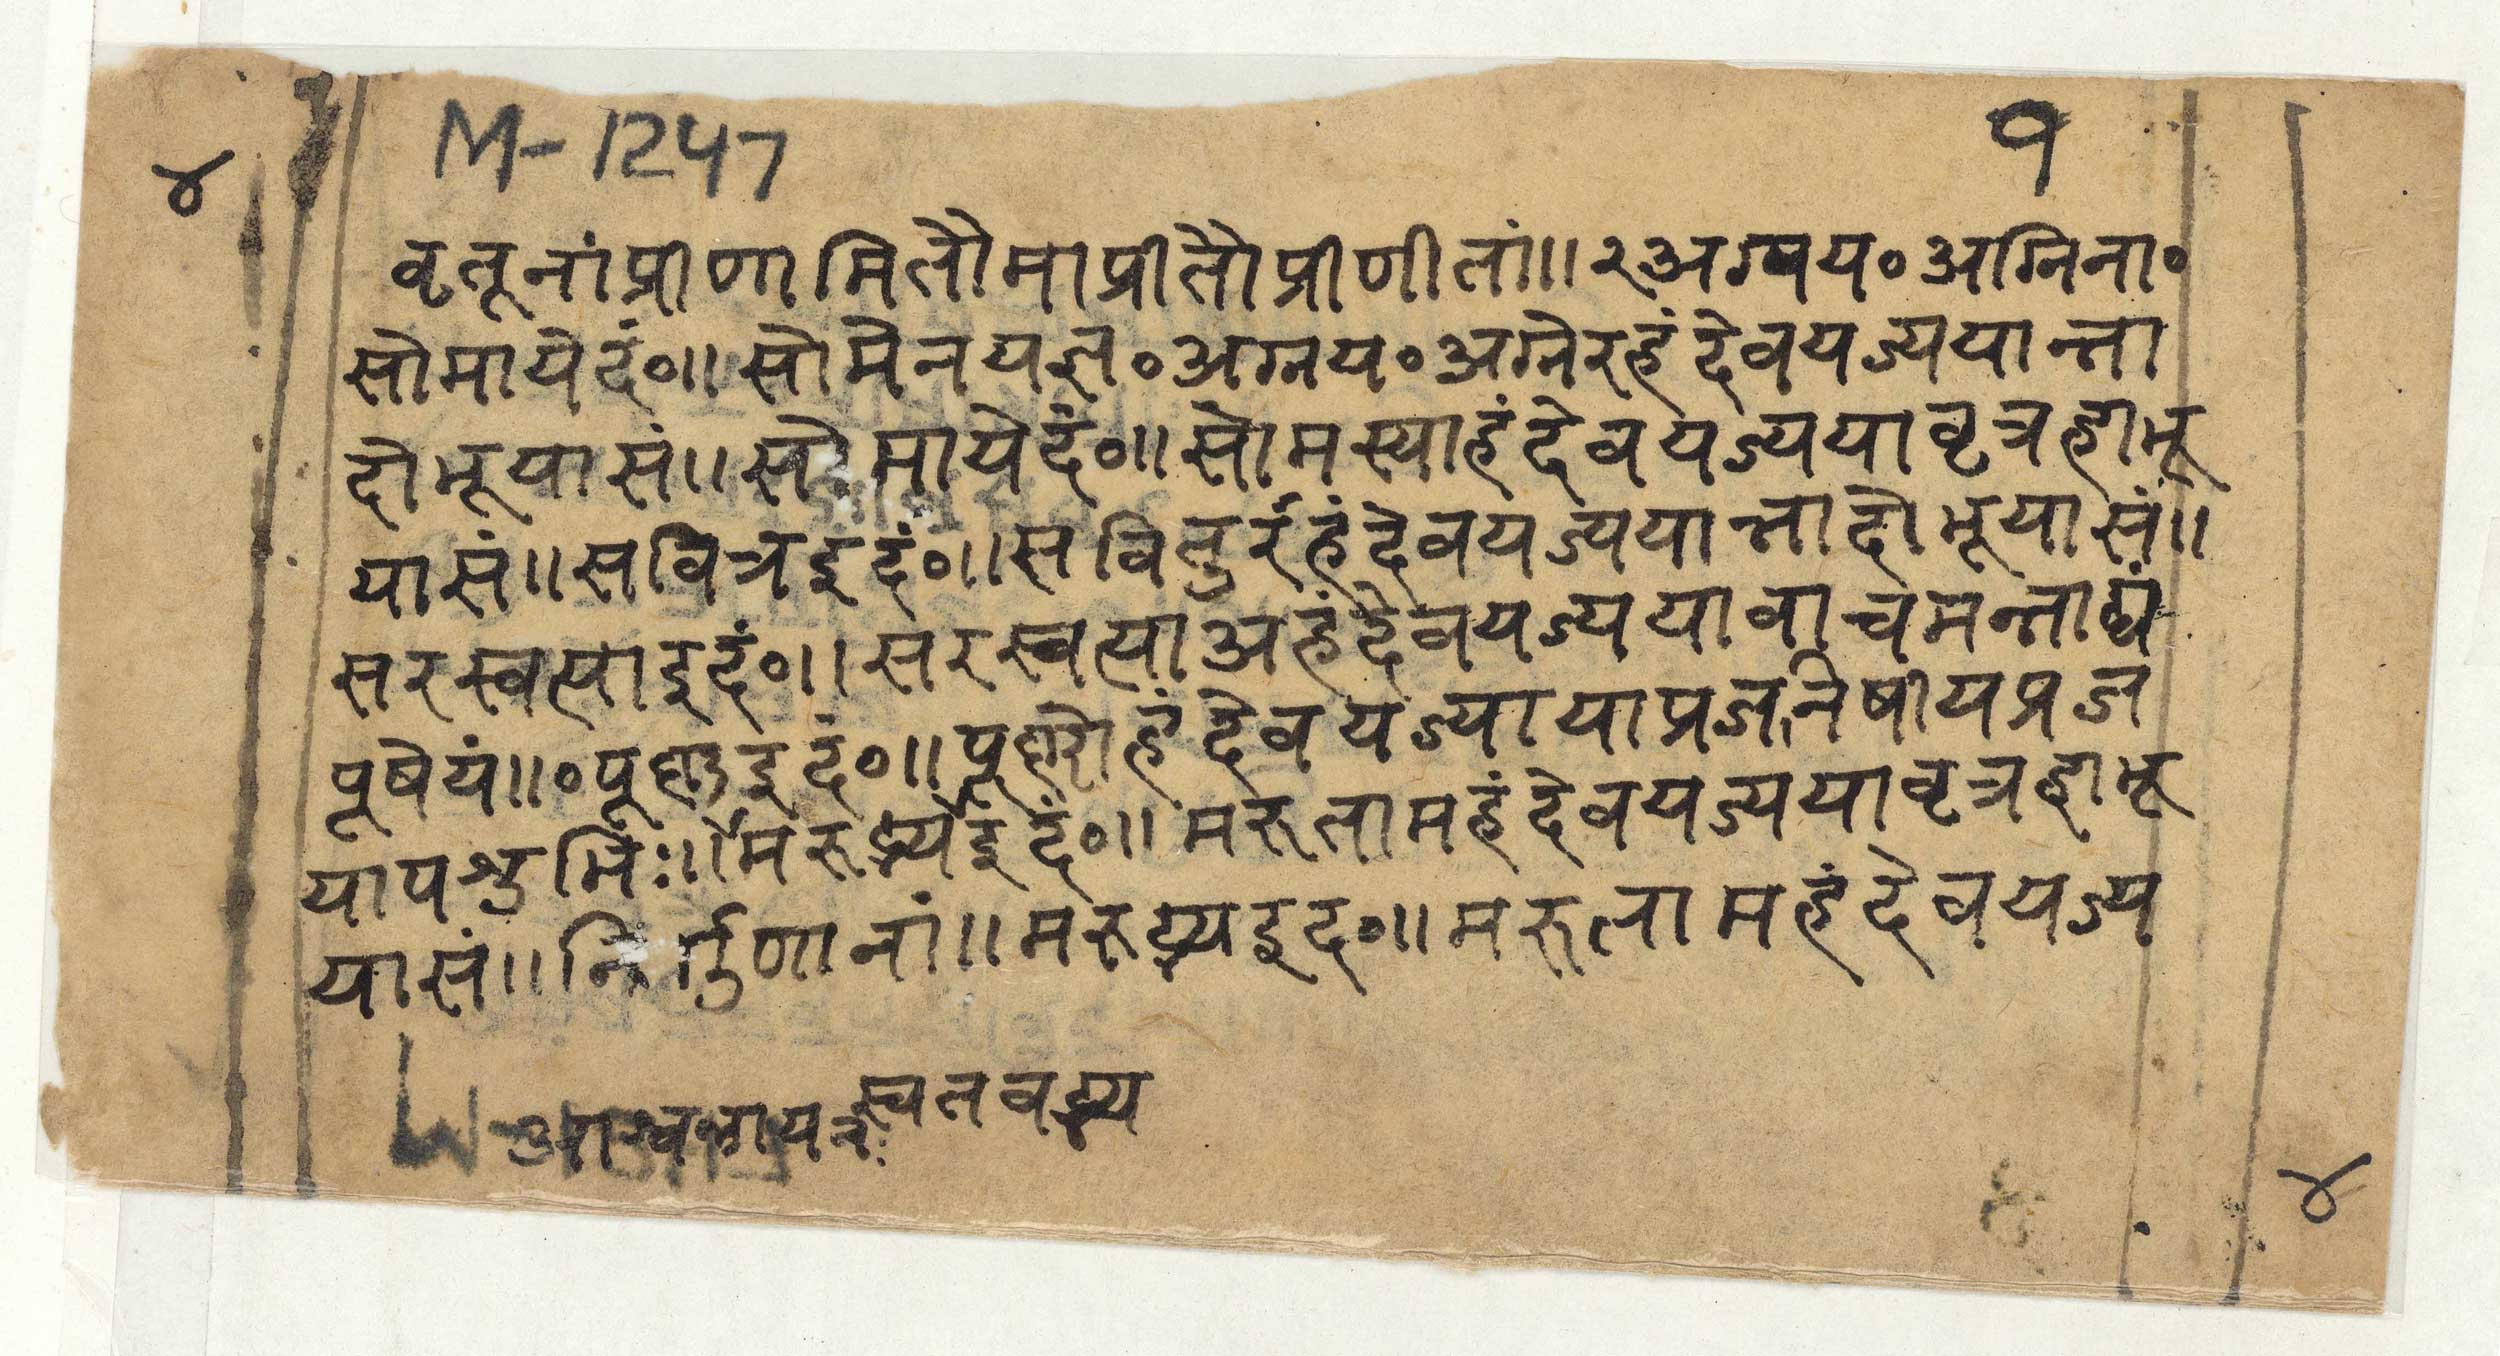 ४
M-1247
१
वृतूनांप्रीणामितौमाप्रीतौप्रीणीतां॥२अग्नय॰अग्निना॰
सोमायेदं॰॥सोमेनयज्ञ॰अग्नय॰अग्नेरहंदेवयज्ययान्ना
दोभूयासं॥सोमायेदं॰॥सोमस्याहंदेवयज्ययावृत्रहाभू
यासं॥सवित्रइदं॰॥सवितुरहंदेवयज्ययान्नादोभूयासं॥
सरस्वत्याइदं॰॥सरस्वत्याअहंदेवयज्ययावाचमन्नाद्यं
पूषेयं॥॰पूष्णइदं॰॥पूष्णोहंदेवयज्यायाप्रजनिषीयप्रज
यापशुभिः॥मरुद्भ्यइदं॰॥मरुतामहंदेवयज्ययावृत्रहाभू
यासं॥निर्गुणानां॥मरुद्भ्यइद॰॥मरुतामहंदेवयज्य
स्वतवद्भ्य
४